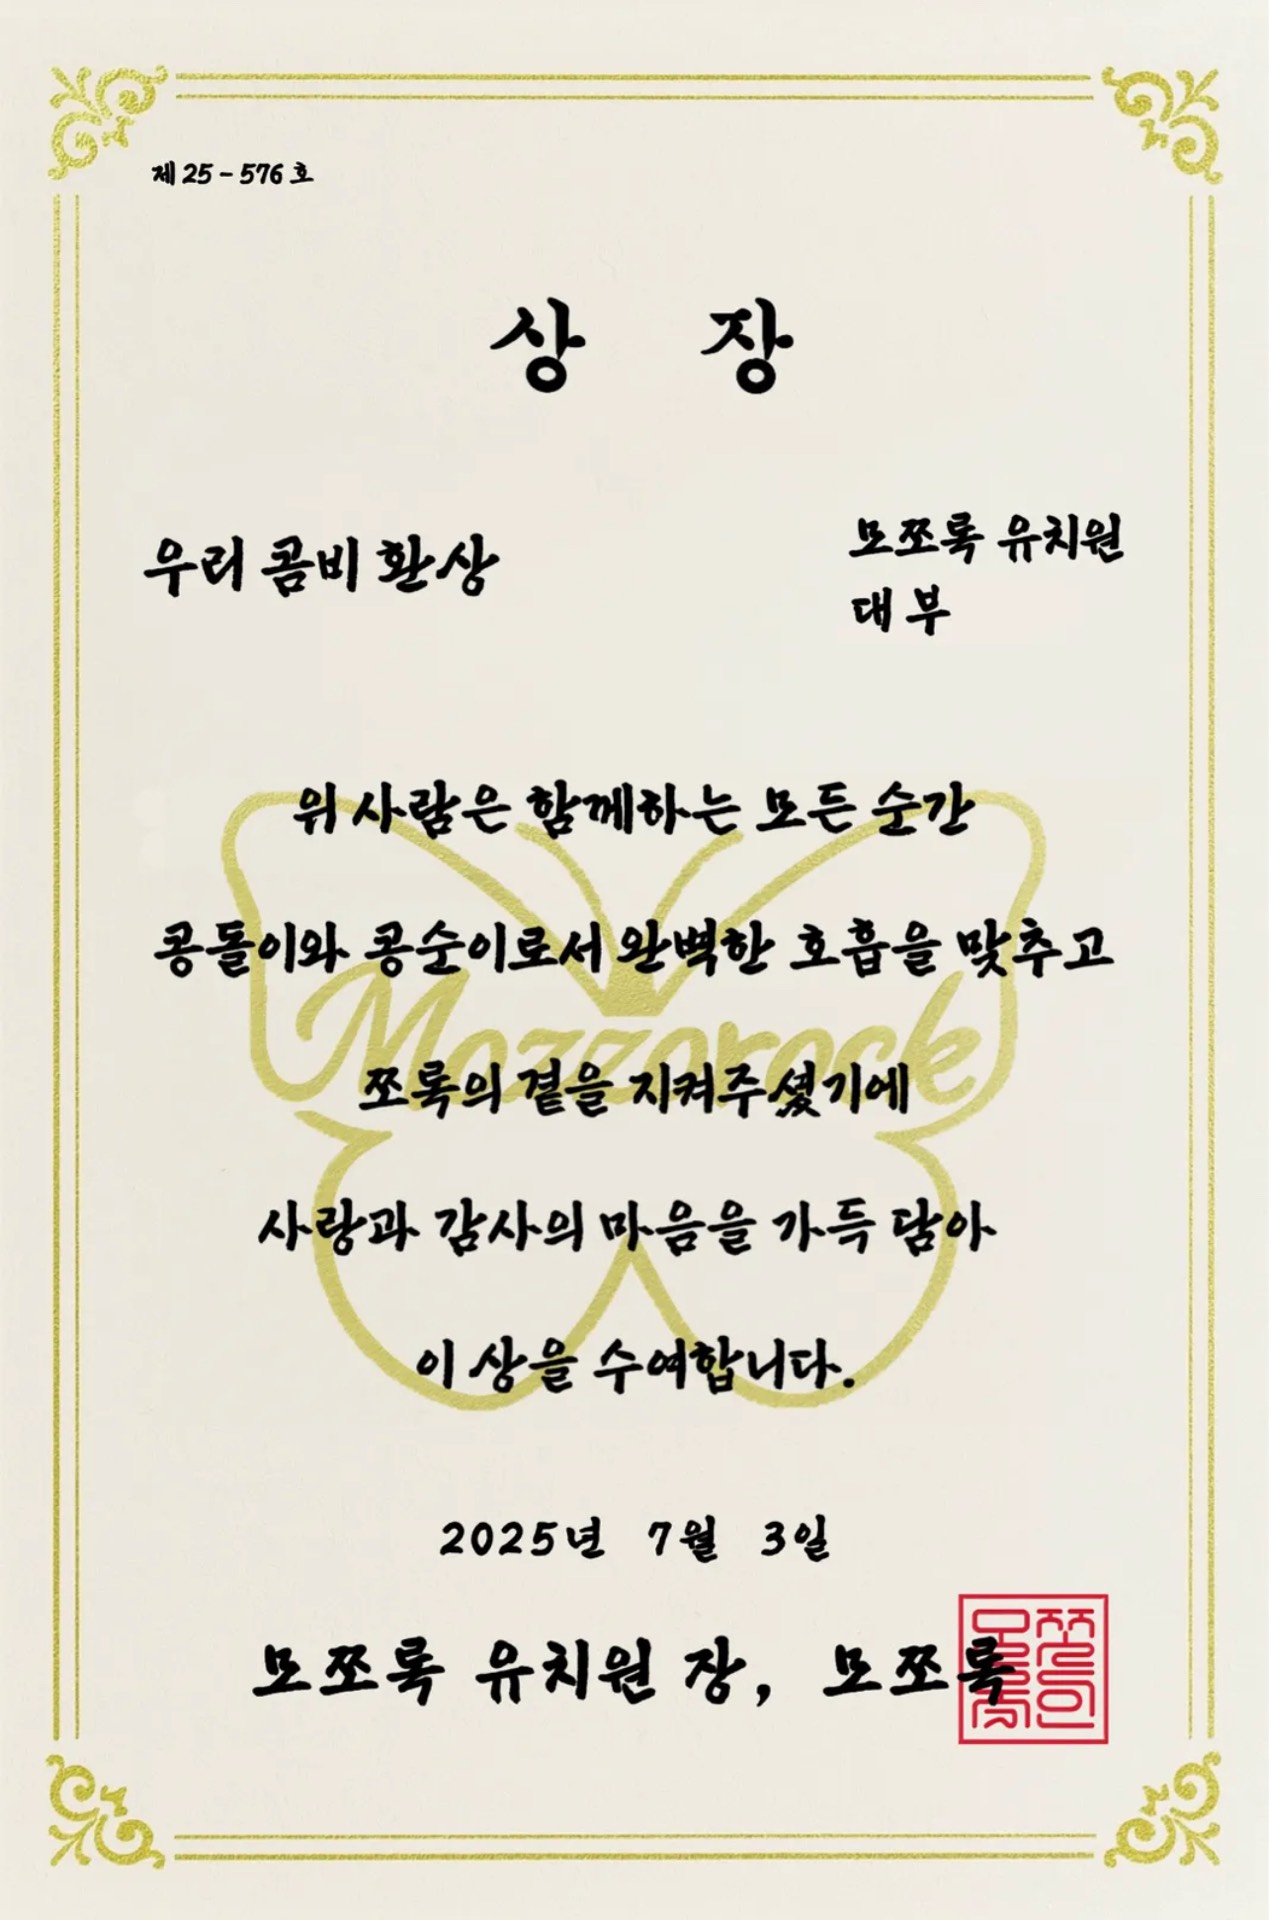 제 25 - 576 호
상 장
우리 콤비 환상
모쪼록 유치원
대부
위 사람은 함께하는 모든 순간
콩돌이와 콩순이로서 완벽한 호흡을 맞추고
Mozzorock
쪼록의 곁을 지켜주셨기에
사랑과 감사의 마음을 가득 담아
이 상을 수여합니다.
2025년 7월 3일
모쪼록 유치원 장, 모쪼록